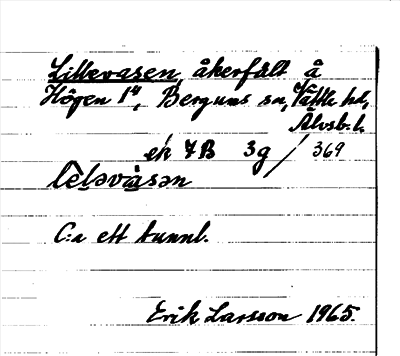 Lillevasen, åkerfält å
Högen 1⁴, Bergums sn, Vättle hd,
Älvsb. l.
ek 7B 3g / 369
lèləvàsən
C:a ett tunnl.
Erik Larsson 1965.